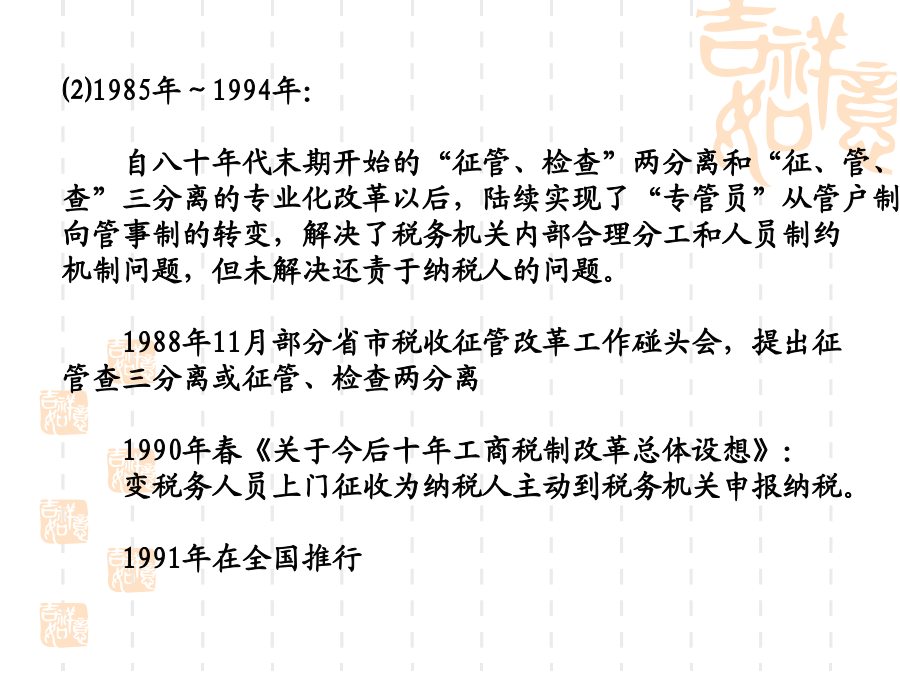 吉祥如意
⑵1985年～1994年：
自八十年代末期开始的“征管、检查”两分离和“征、管、
查”三分离的专业化改革以后，陆续实现了“专管员”从管户制
向管事制的转变，解决了税务机关内部合理分工和人员制约
机制问题，但未解决还责于纳税人的问题。
1988年11月部分省市税收征管改革工作碰头会，提出征
管查三分离或征管、检查两分离
1990年春《关于今后十年工商税制改革总体设想》：
变税务人员上门征收为纳税人主动到税务机关申报纳税。
1991年在全国推行
吉祥如意
吉祥如意
吉祥如意
吉祥如意
吉祥如意
吉祥如意